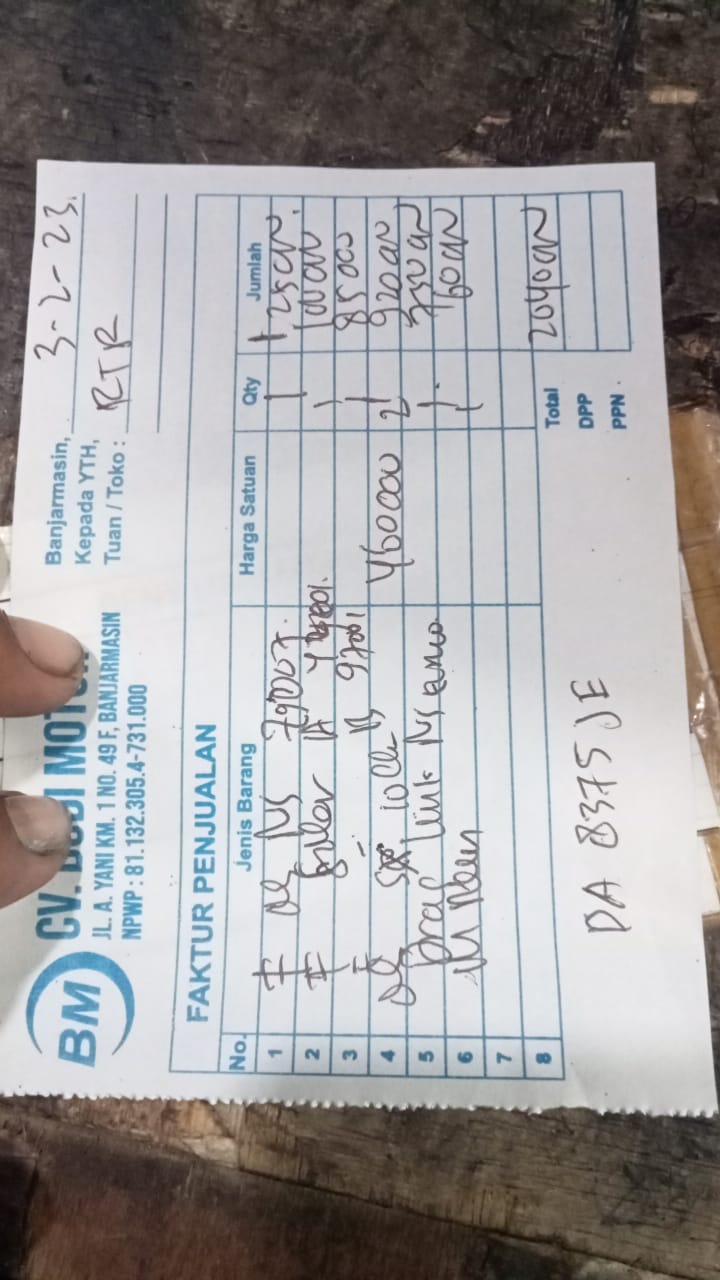 BM
CV. BUDI MOTOR
JL. A. YANI KM. 1 NO. 49 F, BANJARMASIN
NPWP : 81.132.305.4-731.000
Banjarmasin, 3-2-23.
Kepada YTH,
Tuan / Toko : RTR
FAKTUR PENJUALAN
No. Jenis Barang Harga Satuan Qty Jumlah
1 F NS 79007. 1 125000.
2 F A 1 100000
3 F B 97001 1 85000
4 460000 2 920000
5 Drag link NS 1. 750000
6 1 60000
7
8
Total 2040000
DPP
PPN
DA 8375 JE